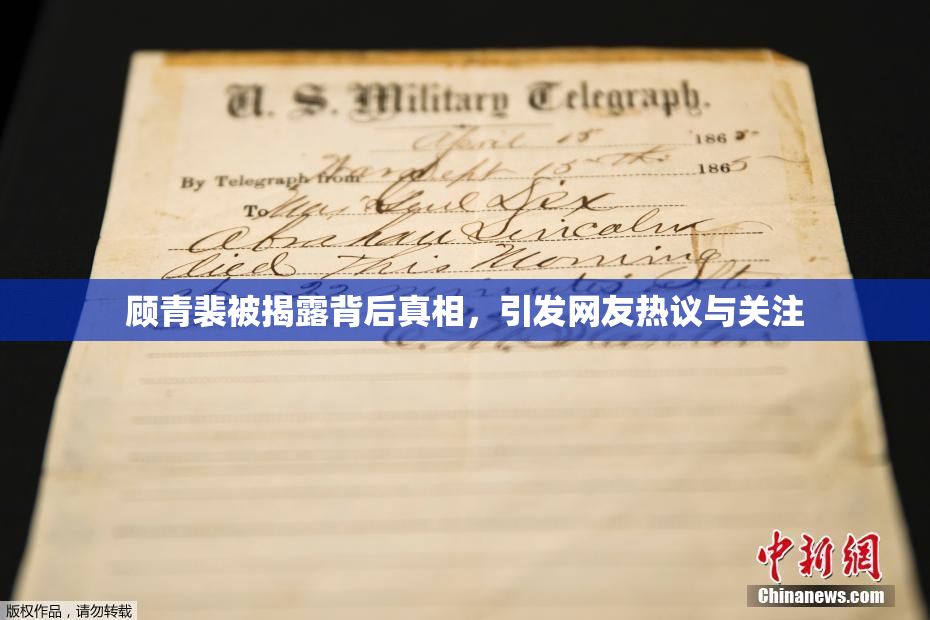 U. S. Military Telegraph.
April 15 1865
By Telegraph from War Dept 15th 1865
To Maj Genl Dix
Abraham Lincoln
died This Morning
22 minutes after
顾青裴被揭露背后真相，引发网友热议与关注
E. M. Stanton
中新網
Chinanews.com
版权作品，请勿转载